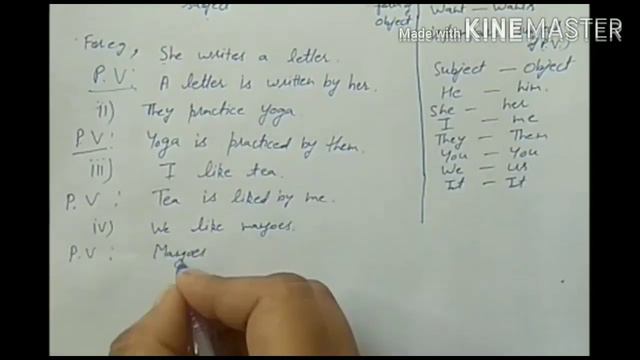 subject
object
Want — Wants
Made with KINEMASTER
For eg, She writes a letter.
P.V: A letter is written by her.
ii) They practice Yoga.
P.V: Yoga is practiced by them.
iii) I like tea.
P.V: Tea is liked by me.
iv) We like mangoes.
P.V: Mangoes
of P.V.)
Subject — Object
He — him.
She — her
I — me
They — Them
You — You
We — us
It — It